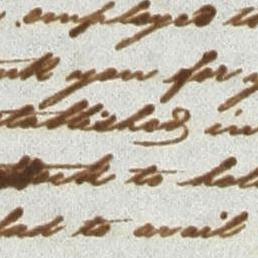 employed to
nk you for y
tablished in
to hol
lad to avail